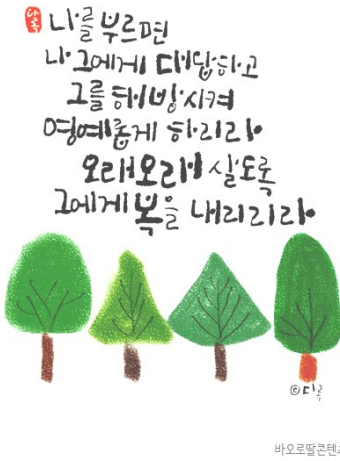 나를 부르면
나 그에게 대답하고
그를 해방시켜
영예롭게 하리라
오래오래 살도록
그에게 복을 내리리라
바오로딸콘텐츠